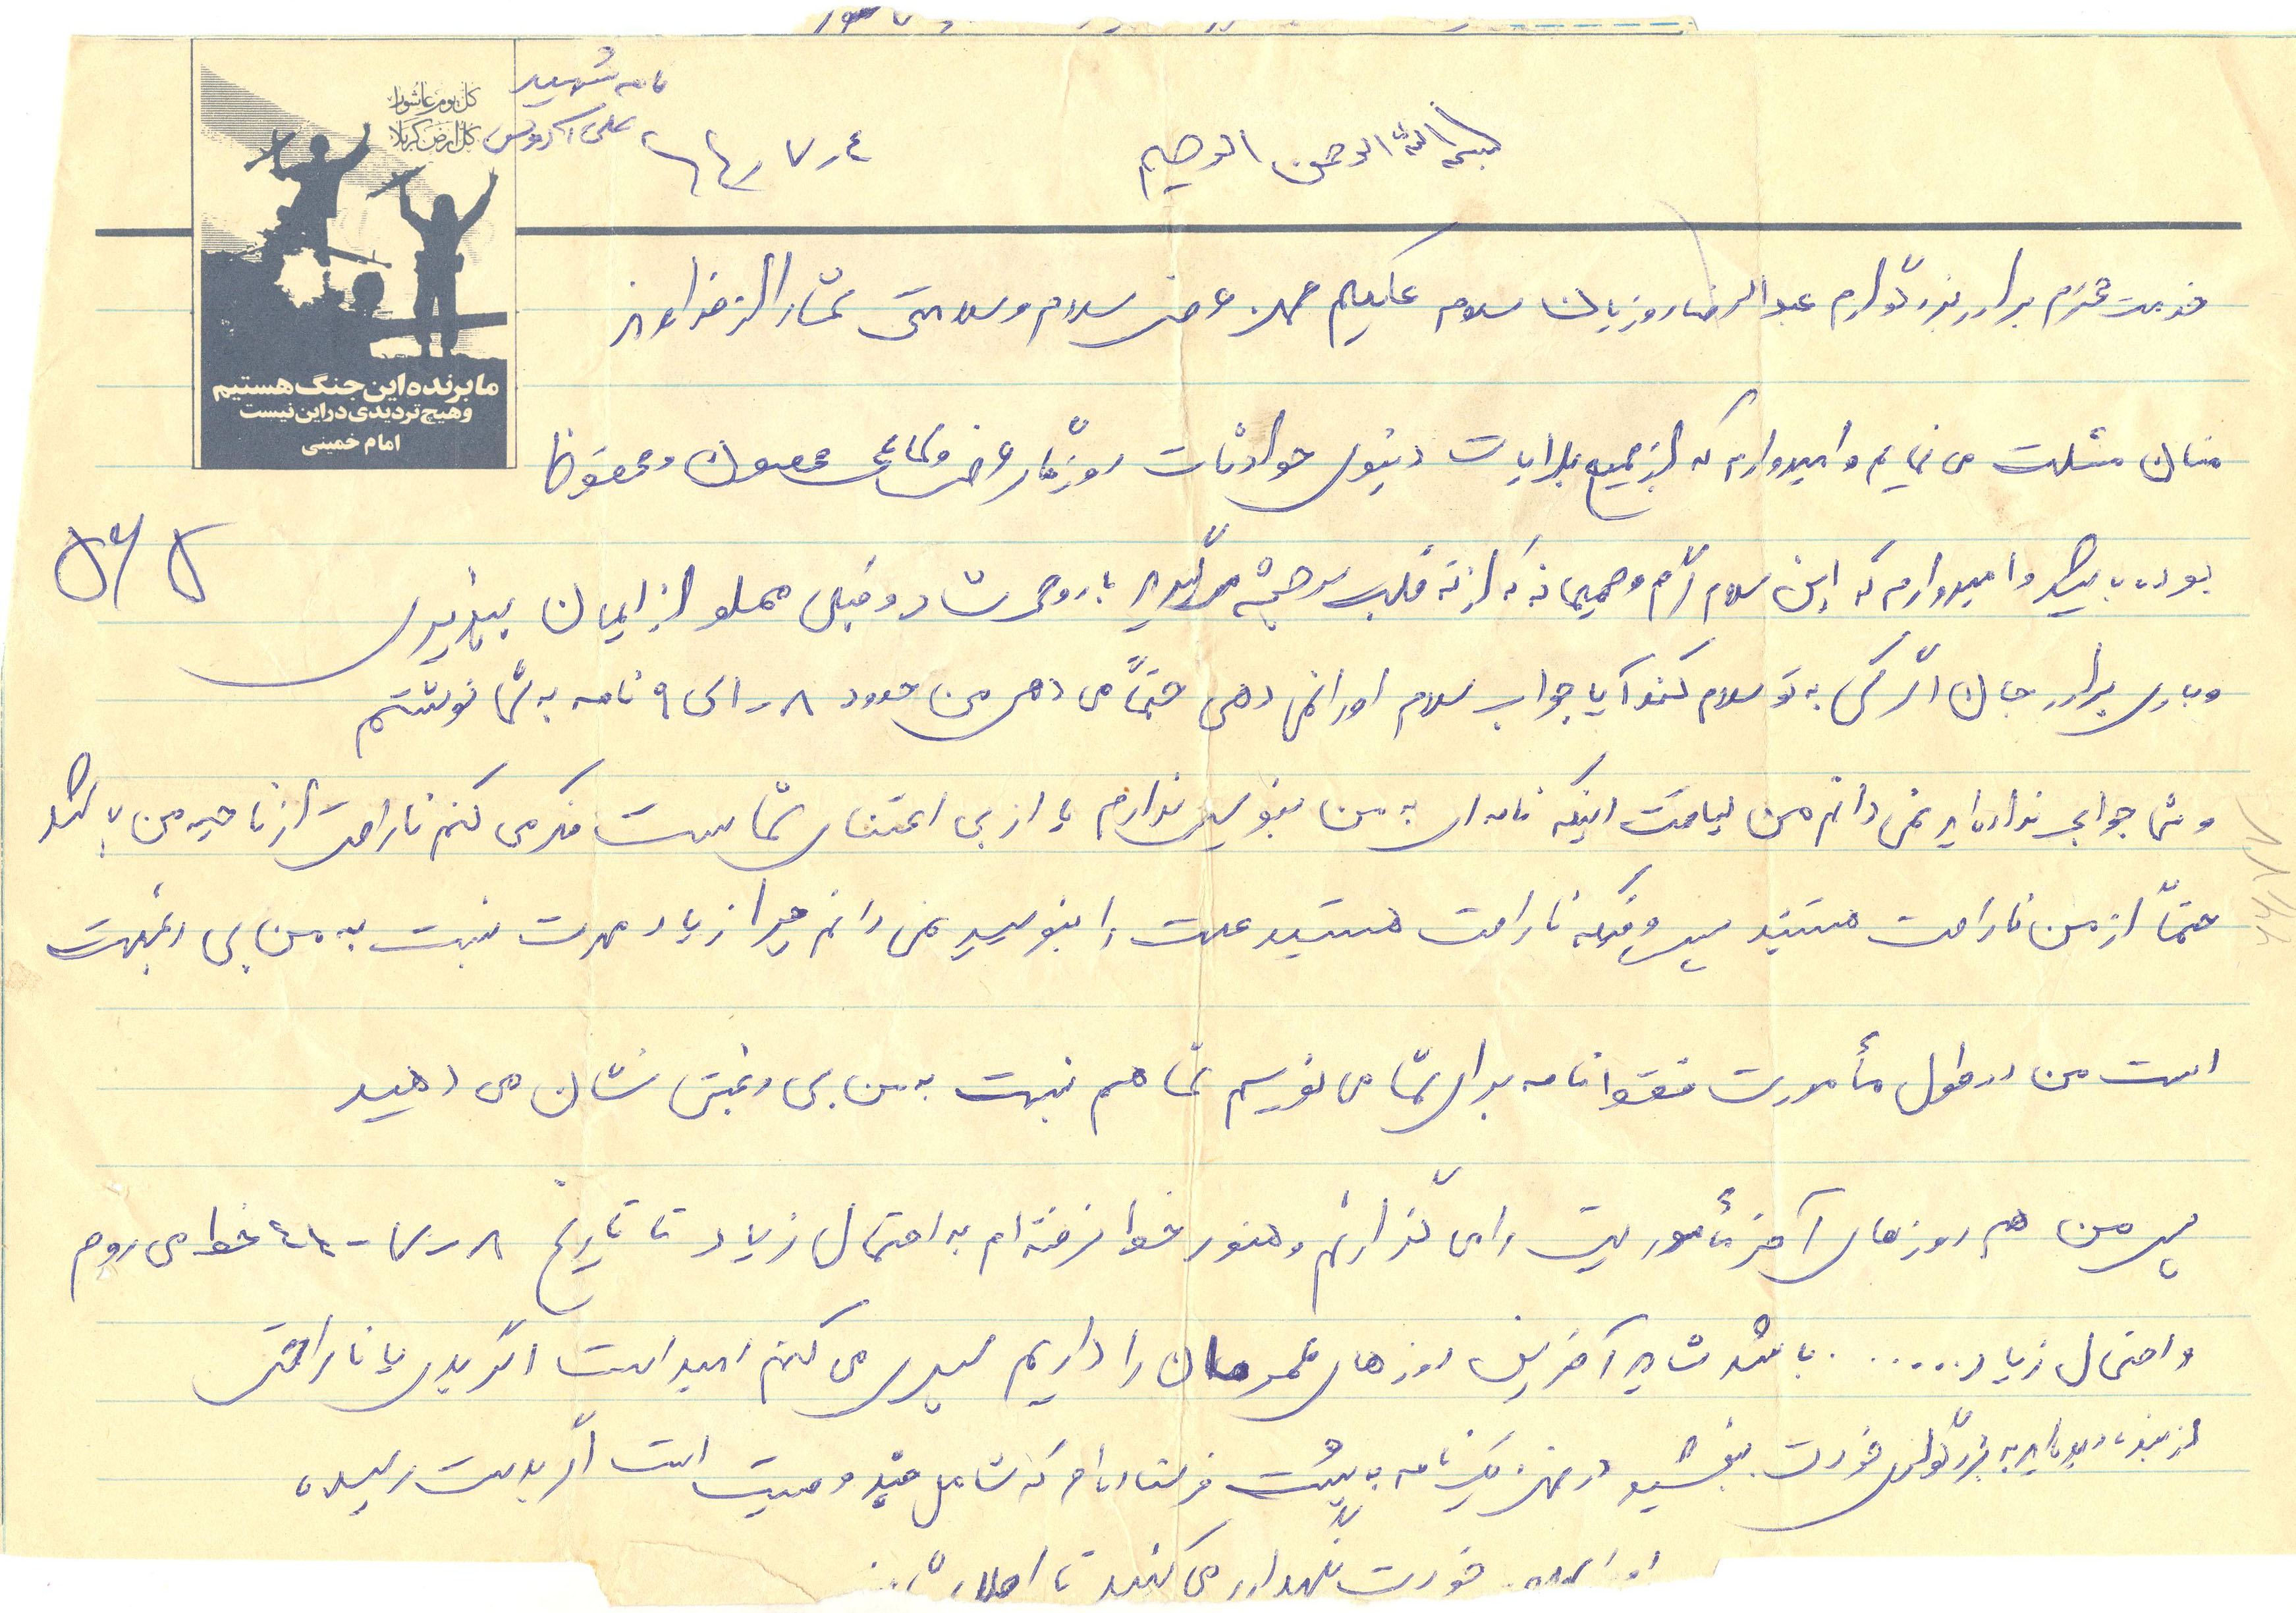 نامه شهید
علی
کل یوم عاشورا
کل ارض کربلا
بسم الله الرحمن الرحیم
ما برنده این جنگ هستیم
و هیچ تردیدی در این نیست
امام خمینی
خدمت محترم برادر بزرگوارم عبدالرضا روزیان سلام علیکم ضمن عرض سلام و سلامتی شما را از خداوند
منان مسئلت می نمایم و امیدوارم که از جمیع بلایات دنیوی حوادثات روزگار محفوظ
بوده باشید و امیدوارم که این سلام گرم و صمیمانه که از ته قلب سرچشمه می گیرد با روحی شاد و قلبی مملو از ایمان بپذیری
و باری برادر جان اگر کسی به تو سلام کند آیا جواب سلام او را نمی دهی حتماً می دهی من حدود ۸ الی ۹ نامه به شما نوشتم
و شما جوابی نداده اید نمی دانم من لیاقت اینکه نامه ای به من بنویسی ندارم یا از بی اعتنای شماست فکر می کنم ناراحتی از ناحیه من باشد
حتماً از من ناراحت هستید پس وقتیکه ناراحت هستید علت را بنویسید نمی دانم چرا زیاد مدت نسبت به من بی رغبت
است من در طول مأموریت فقط نامه برای شما می نویسم شما هم نسبت به من بی رغبتی نشان می دهید
پس من هم روزهای آخر مأموریت را می گذارنم و هنوز خط نرفته ام به احتمال زیاد تا تاریخ ۸-۷- خط می روم
و احتمال زیاد ...... باشد شاید آخرین روزهای عمرمان را داریم سپری می کنم امید است اگر بدی یا ناراحتی
از بنده دیده اید به بزرگواری خودت ببخشید در ضمن یک نامه به پست فرستاده ام که شامل چند وصیت است اگر بدست رسیده
خودت نگهداری می کنید تا